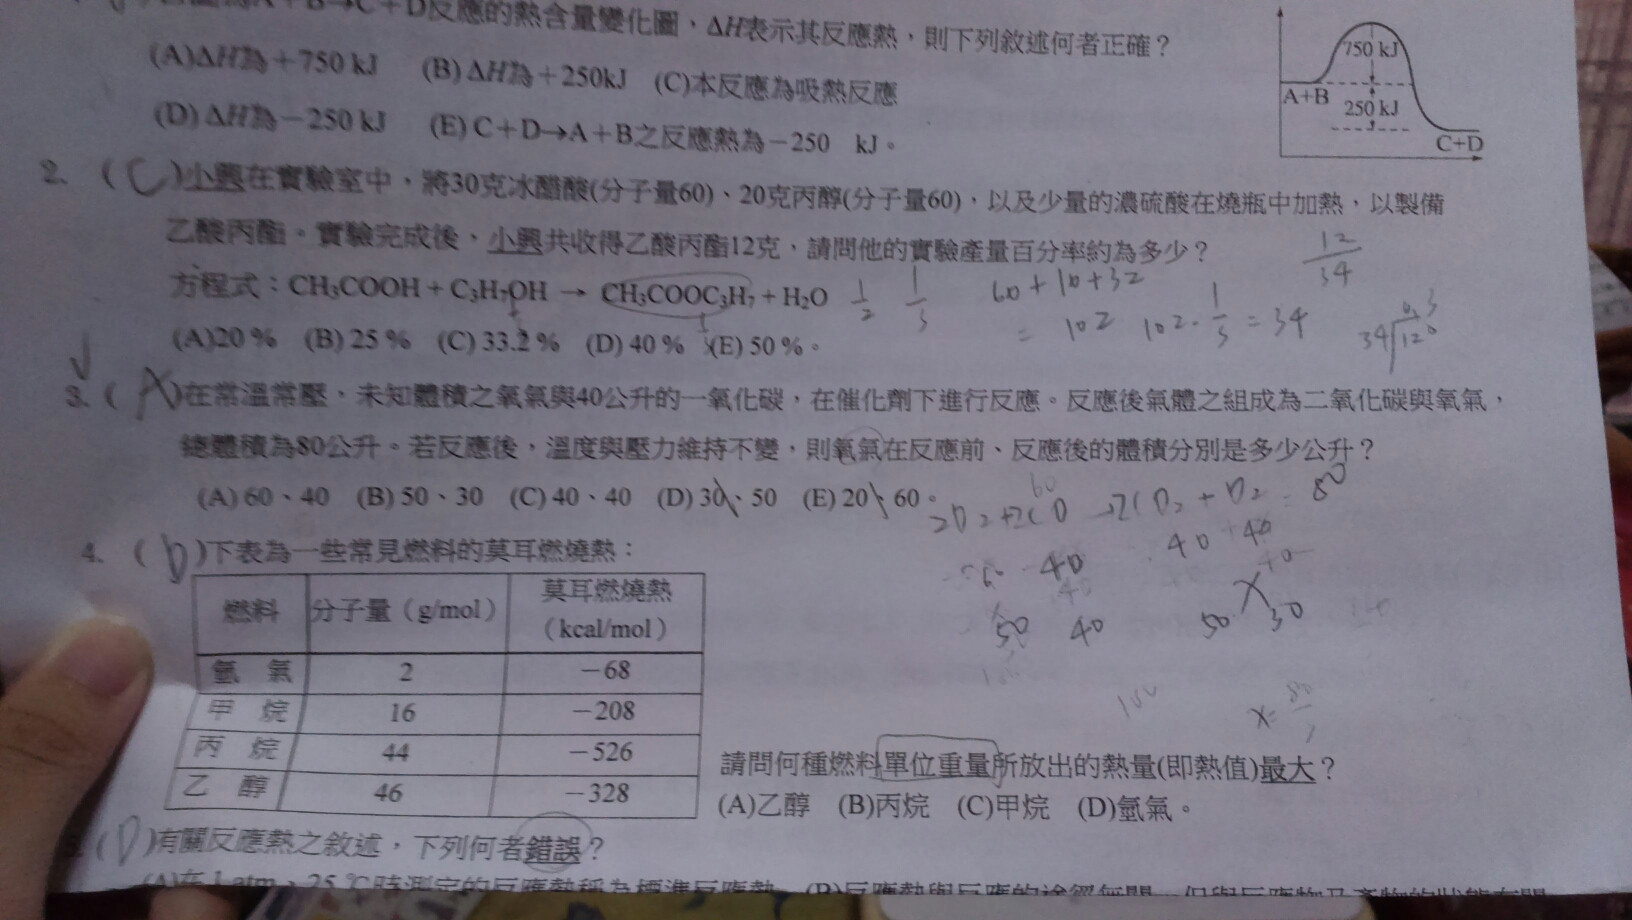 A+B→C+D反應的熱含量變化圖，ΔH表示其反應熱，則下列敘述何者正確？
(A)ΔH為＋750 kJ (B) ΔH為＋250kJ (C)本反應為吸熱反應
(D) ΔH為－250 kJ (E) C＋D→A＋B之反應熱為－250 kJ。
750 kJ
A+B
250 kJ
C+D
2. (C)小興在實驗室中，將30克冰醋酸(分子量60)、20克丙醇(分子量60)，以及少量的濃硫酸在燒瓶中加熱，以製備
乙酸丙酯。實驗完成後，小興共收得乙酸丙酯12克，請問他的實驗產量百分率約為多少？
方程式：CH₃COOH + C₃H₇OH → CH₃COOC₃H₇ + H₂O
(A)20 % (B) 25 % (C) 33.2 % (D) 40 % (E) 50 %。
1/2 1/3
60+10+32
= 102 102·1/3=34
12/34
34 120
3. (A)在常溫常壓，未知體積之氧氣與40公升的一氧化碳，在催化劑下進行反應。反應後氣體之組成為二氧化碳與氧氣，
總體積為80公升。若反應後，溫度與壓力維持不變，則氧氣在反應前、反應後的體積分別是多少公升？
(A) 60、40 (B) 50、30 (C) 40、40 (D) 30、50 (E) 20、60。
60
2O₂+2CO→2CO₂+O₂=80
40 40+40
50 40 50 30
4. (D)下表為一些常見燃料的莫耳燃燒熱：
燃料 分子量（g/mol） 莫耳燃燒熱（kcal/mol）
氫 氣 2 －68
甲 烷 16 －208
丙 烷 44 －526
乙 醇 46 －328
請問何種燃料單位重量所放出的熱量(即熱值)最大？
(A)乙醇 (B)丙烷 (C)甲烷 (D)氫氣。
(D)有關反應熱之敘述，下列何者錯誤？
(A)在 1 atm、25 ℃時測定的反應熱稱為標準反應熱 (B)反應熱與反應的途徑無關，但與反應物及產物的狀態有關